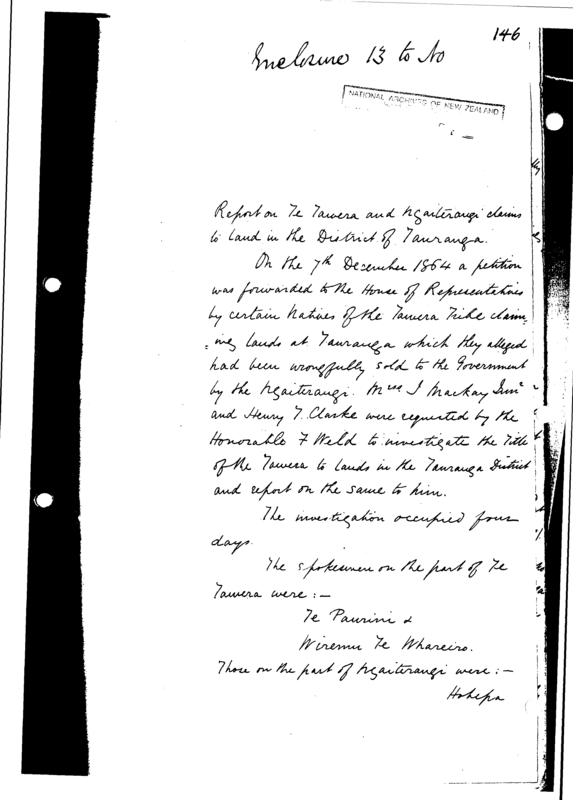 146
Enclosure 13 to No
NATIONAL ARCHIVES OF NEW ZEALAND
Report on Te Tawera and Ngaiterangi claims
to Land in the District of Tauranga.
On the 7th December 1864 a petition
was forwarded to the House of Representatives
by certain Natives of the Tawera Tribe claim=
=ing Lands at Tauranga which they alleged
had been wrongfully sold to the Government
by the Ngaiterangi. Messrs J Mackay Junr
and Henry T. Clarke were requested by the
Honorable F Weld to investigate the Title
of the Tawera to Lands in the Tauranga District
and report on the same to him.
The investigation occupied four
days.
The spokesmen on the part of Te
Tawera were :—
Te Paurini &
Wiremu Te Whareiro.
Those on the part of Ngaiterangi were :—
Hohepa